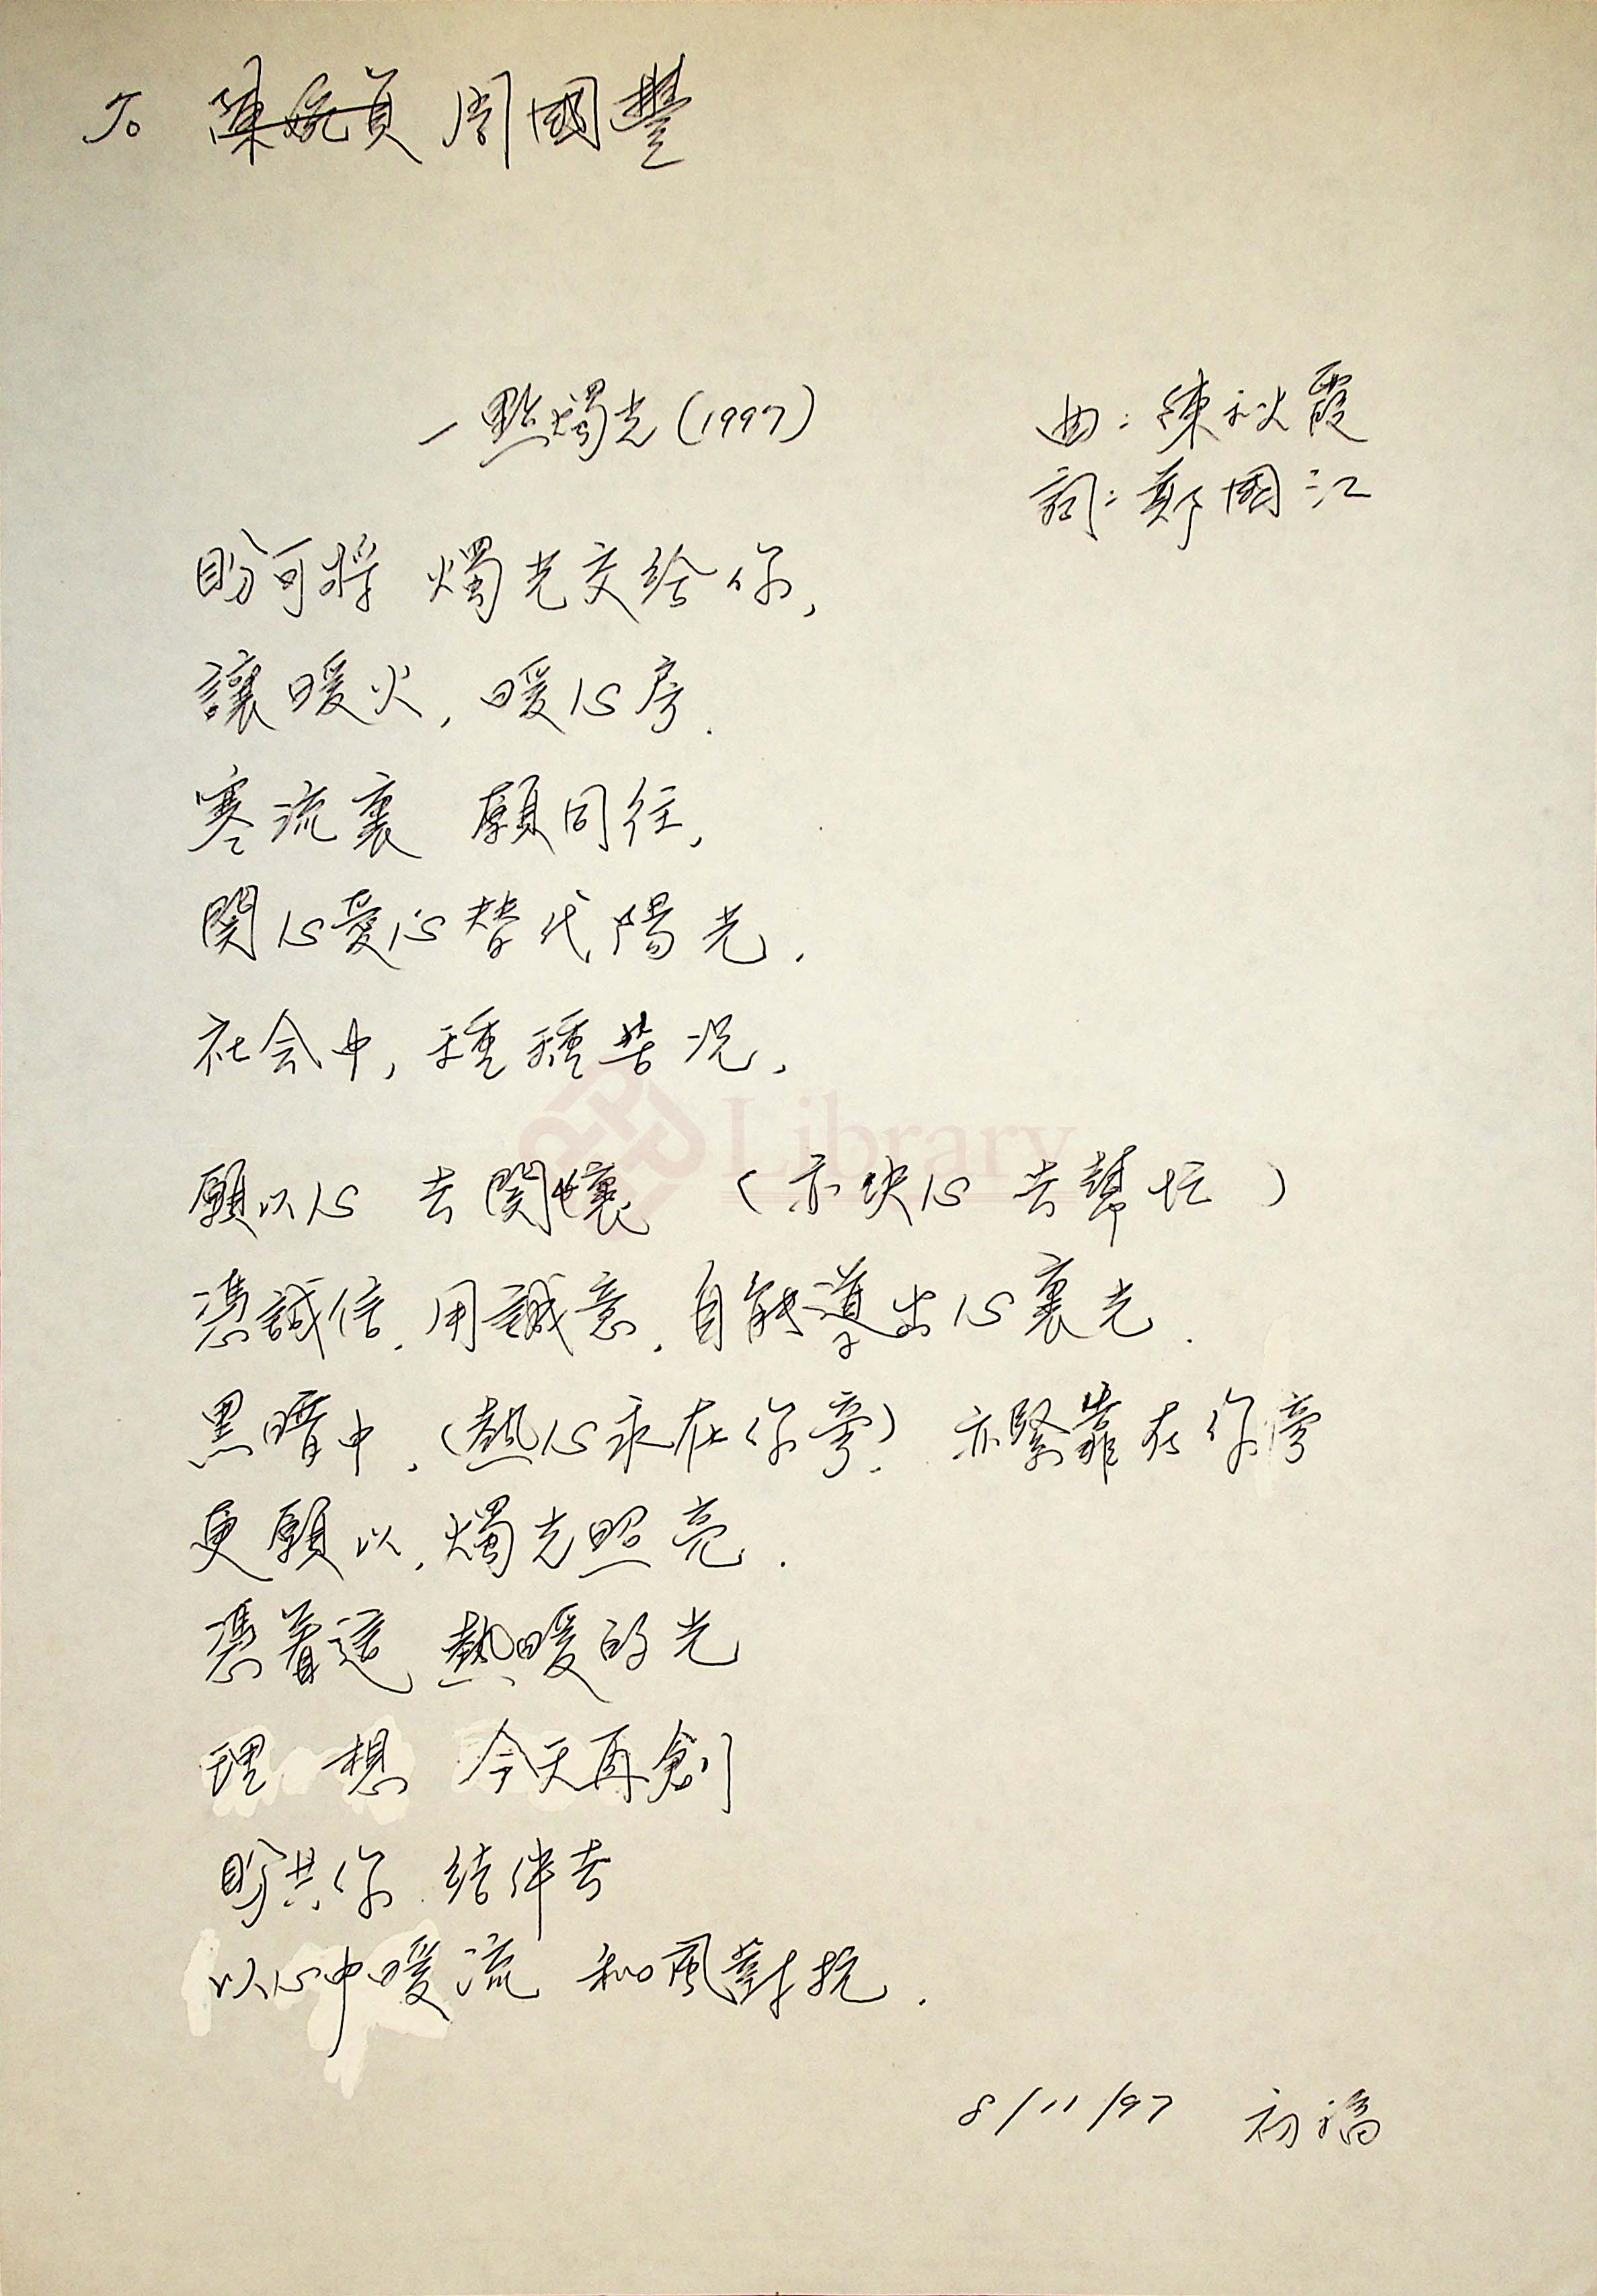 To 陳婉貞 周國豐
一點燭光(1997)
曲：陳秋霞
詞：鄭國江
盼可將 燭光交給你,
讓暖火, 暖心房.
寒流裏 願同往,
関心愛心替代陽光.
社会中, 種種苦況,
願以心 去関懷 (亦決心 去幫忙)
憑誠信, 用誠意, 自能導出心裏光.
黑暗中, (熱心永在你旁). 亦緊靠在你旁
更願以, 燭光照亮.
憑着這 熱暖的光
理 想 今天再創
盼共你 結伴去
以心中暖流 和風對抗.
8/11/97 初稿
Library